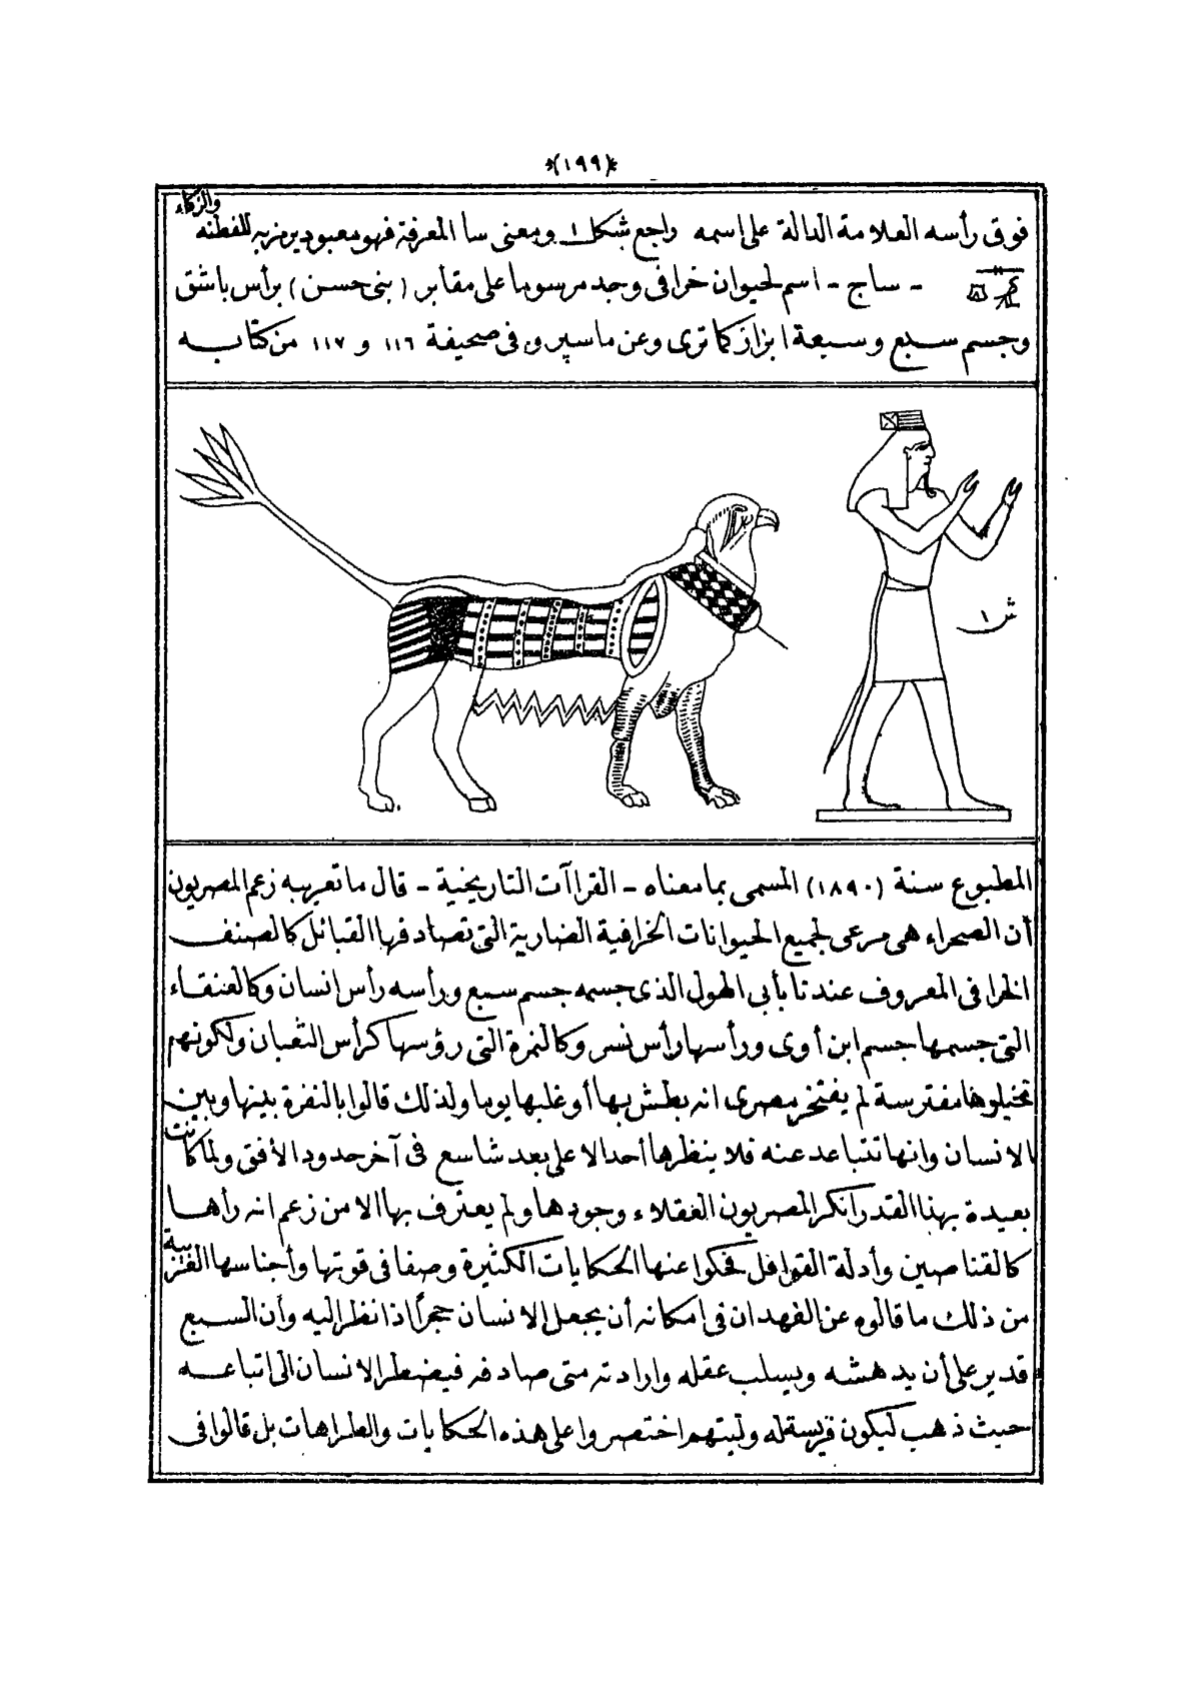 (١٩٩)
فوق رأسه العلامة الدالة على اسمه راجع شكل ١ ومعنى سا المعرفة فهو معبود يرمز به للفطنه والذكاء
- ساج - اسم لحيوان خرافى وجد مرسوما على مقابر (بنى حسن) برأس باشق
وجسم سبع وسبعة ابزاز كما ترى وعن ماسپرو فى صحيفة ١١٦ و ١١٧ من كتابه
ش ١
المطبوع سنة (١٨٩٠) المسمى بما معناه - القراآت التاريخية - قال ما تعريبه زعم المصريون
أن الصحراء هى مرعى لجميع الحيوانات الخرافية الضارية التى تصادفها القبائل كالصنف
الخرافى المعروف عندنا بأبى الهول الذى جسمه جسم سبع ورأسه رأس انسان وكالعنقاء
التى جسمها جسم ابن أوى ورأسها رأس نسر وكالنمرة التى رؤسها كرأس الثعبان ولكونهم
تخيلوها مفترسة لم يفتخر مصرى انه بطش بها أو غلبها يوما ولذلك قالوا بالنفرة بينها وبين
الانسان وانها تتباعد عنه فلا ينظرها أحد الا على بعد شاسع فى آخر حدود الأفق ولما كانت
بعيدة بهذا القدر انكر المصريون العقلاء وجودها ولم يعترف بها الا من زعم انه رأها
كالقناصين وأدلة القوافل فحكوا عنها الحكايات الكثيرة وصفا فى قوتها وأجناسها الغريبة
من ذلك ما قالوه عن الفهد ان فى امكانه أن يجعل الانسان حجراً اذا نظر اليه وأن السبع
قدير على أن يدهشه ويسلب عقله وارادته متى صادفه فيضطر الانسان الى اتباعه
حيث ذهب ليكون فريسة له وليتهم اختصروا على هذه الحكايات والطراهات بل قالوا فى